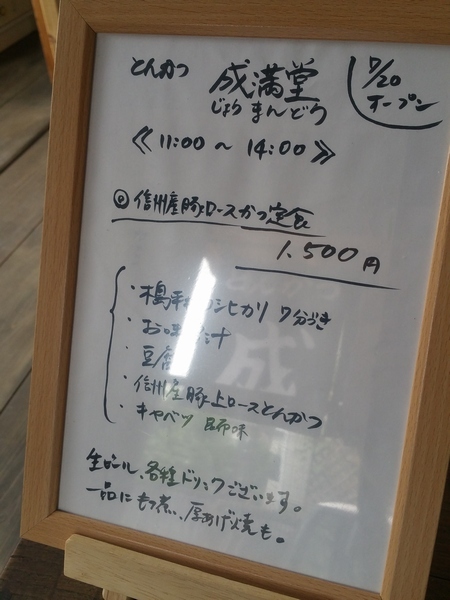 とんかつ 成満堂
じょうまんどう
7/20
オープン
《11:00 ~ 14:00》
信州産豚ロースかつ定食
1,500円
・コシヒカリ 7分づき
・お味汁
・豆腐
・信州産豚上ロースとんかつ
・キャベツ
生ビール、各種ドリンクございます。
一品にもつ煮、厚あげ焼も。
成